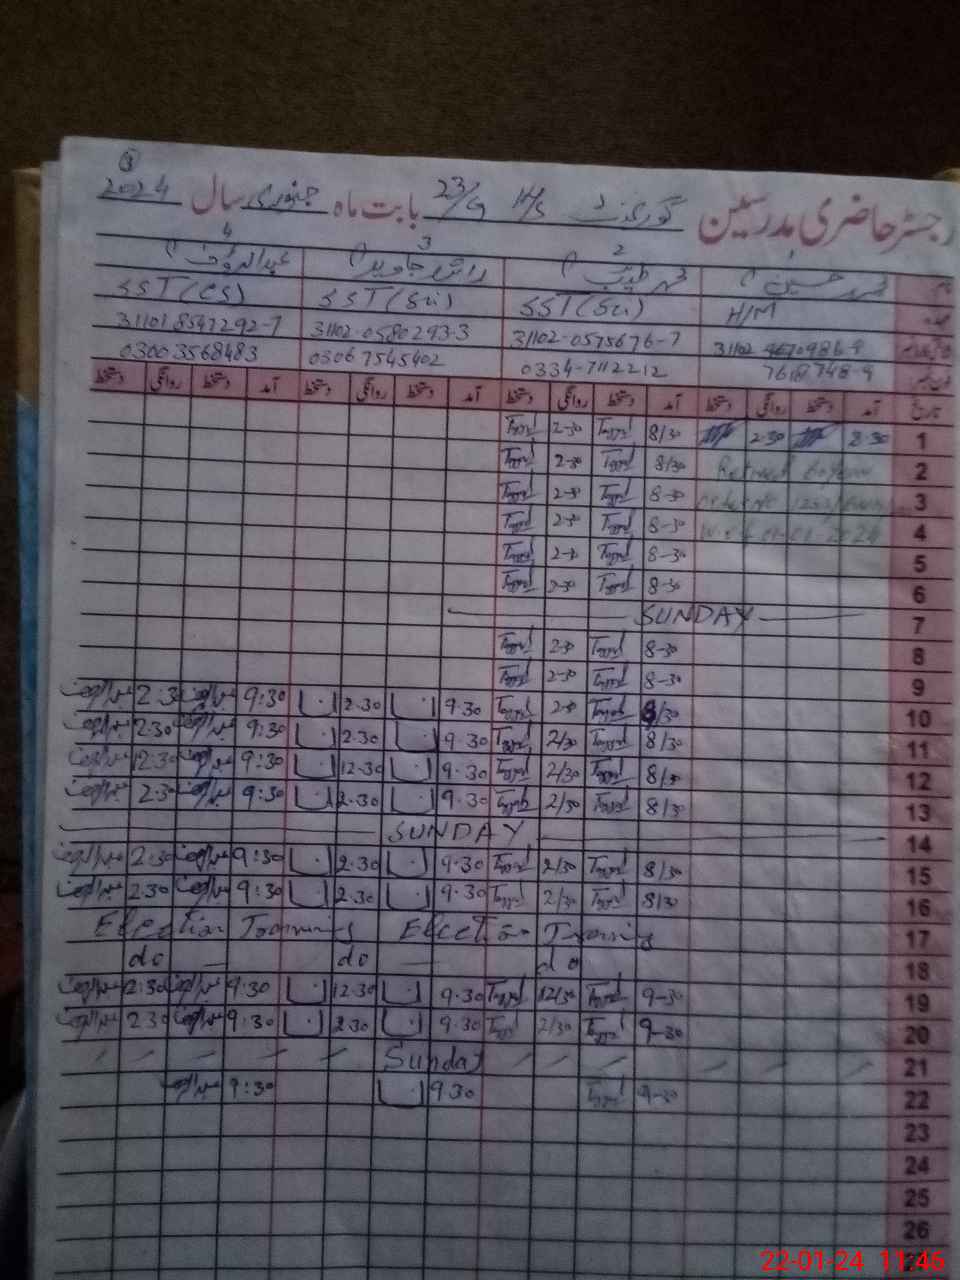 رجسٹر حاضری مدرسین گورنمنٹ H/S 23/G بابت ماہ جنوری سال 2024
1 2 3 4
محمد حسین محمد طیب عبدالرؤف
H/M SST(Sci) SST(Sci) SST(CS)
31102-0575676-7 31102-0580293-3 311018547292-7
0334-7112212 03067545402 03003568483
تاریخ آمد دستخط روانگی دستخط آمد دستخط روانگی دستخط آمد دستخط روانگی دستخط آمد دستخط روانگی دستخط
1 8-30 2-30 8/30 Tayyab 2-30 Tayyab
2 Retired 8/30 Tayyab 2-30 Tayyab
3 8-30 Tayyab 2-30 Tayyab
4 01-01-2024 8-30 Tayyab 2-30 Tayyab
5 8-30 Tayyab 2-30 Tayyab
6 8-30 Tayyab 2-30 Tayyab
7 SUNDAY
8 8-30 Tayyab 2-30 Tayyab
9 8-30 Tayyab 2-30 Tayyab
10 8/30 Tayyab 2-30 Tayyab 9.30 2.30 9:30 عبدالرؤف 2.30 عبدالرؤف
11 8/30 Tayyab 2/30 Tayyab 9.30 2.30 9:30 عبدالرؤف 2.30 عبدالرؤف
12 8/30 Tayyab 2/30 Tayyab 9.30 12.30 9:30 عبدالرؤف 12.30 عبدالرؤف
13 8/30 Tayyab 2/30 Tayyab 9.30 2.30 9:30 عبدالرؤف 2.30 عبدالرؤف
14 SUNDAY
15 8/30 Tayyab 2/30 Tayyab 9.30 2.30 9:30 عبدالرؤف 2.30 عبدالرؤف
16 8/30 Tayyab 2/30 Tayyab 9.30 2.30 9:30 عبدالرؤف 2.30 عبدالرؤف
17 Election Training Election Training
18 do do do
19 9-30 Tayyab 12/30 Tayyab 9.30 12.30 9.30 عبدالرؤف 2.30 عبدالرؤف
20 9-30 Tayyab 2/30 Tayyab 9.30 2.30 9:30 عبدالرؤف 2.30 عبدالرؤف
21 Sunday
22 9-30 Tayyab 9.30 9:30 عبدالرؤف
23
24
25
26
22-01-24 11:46